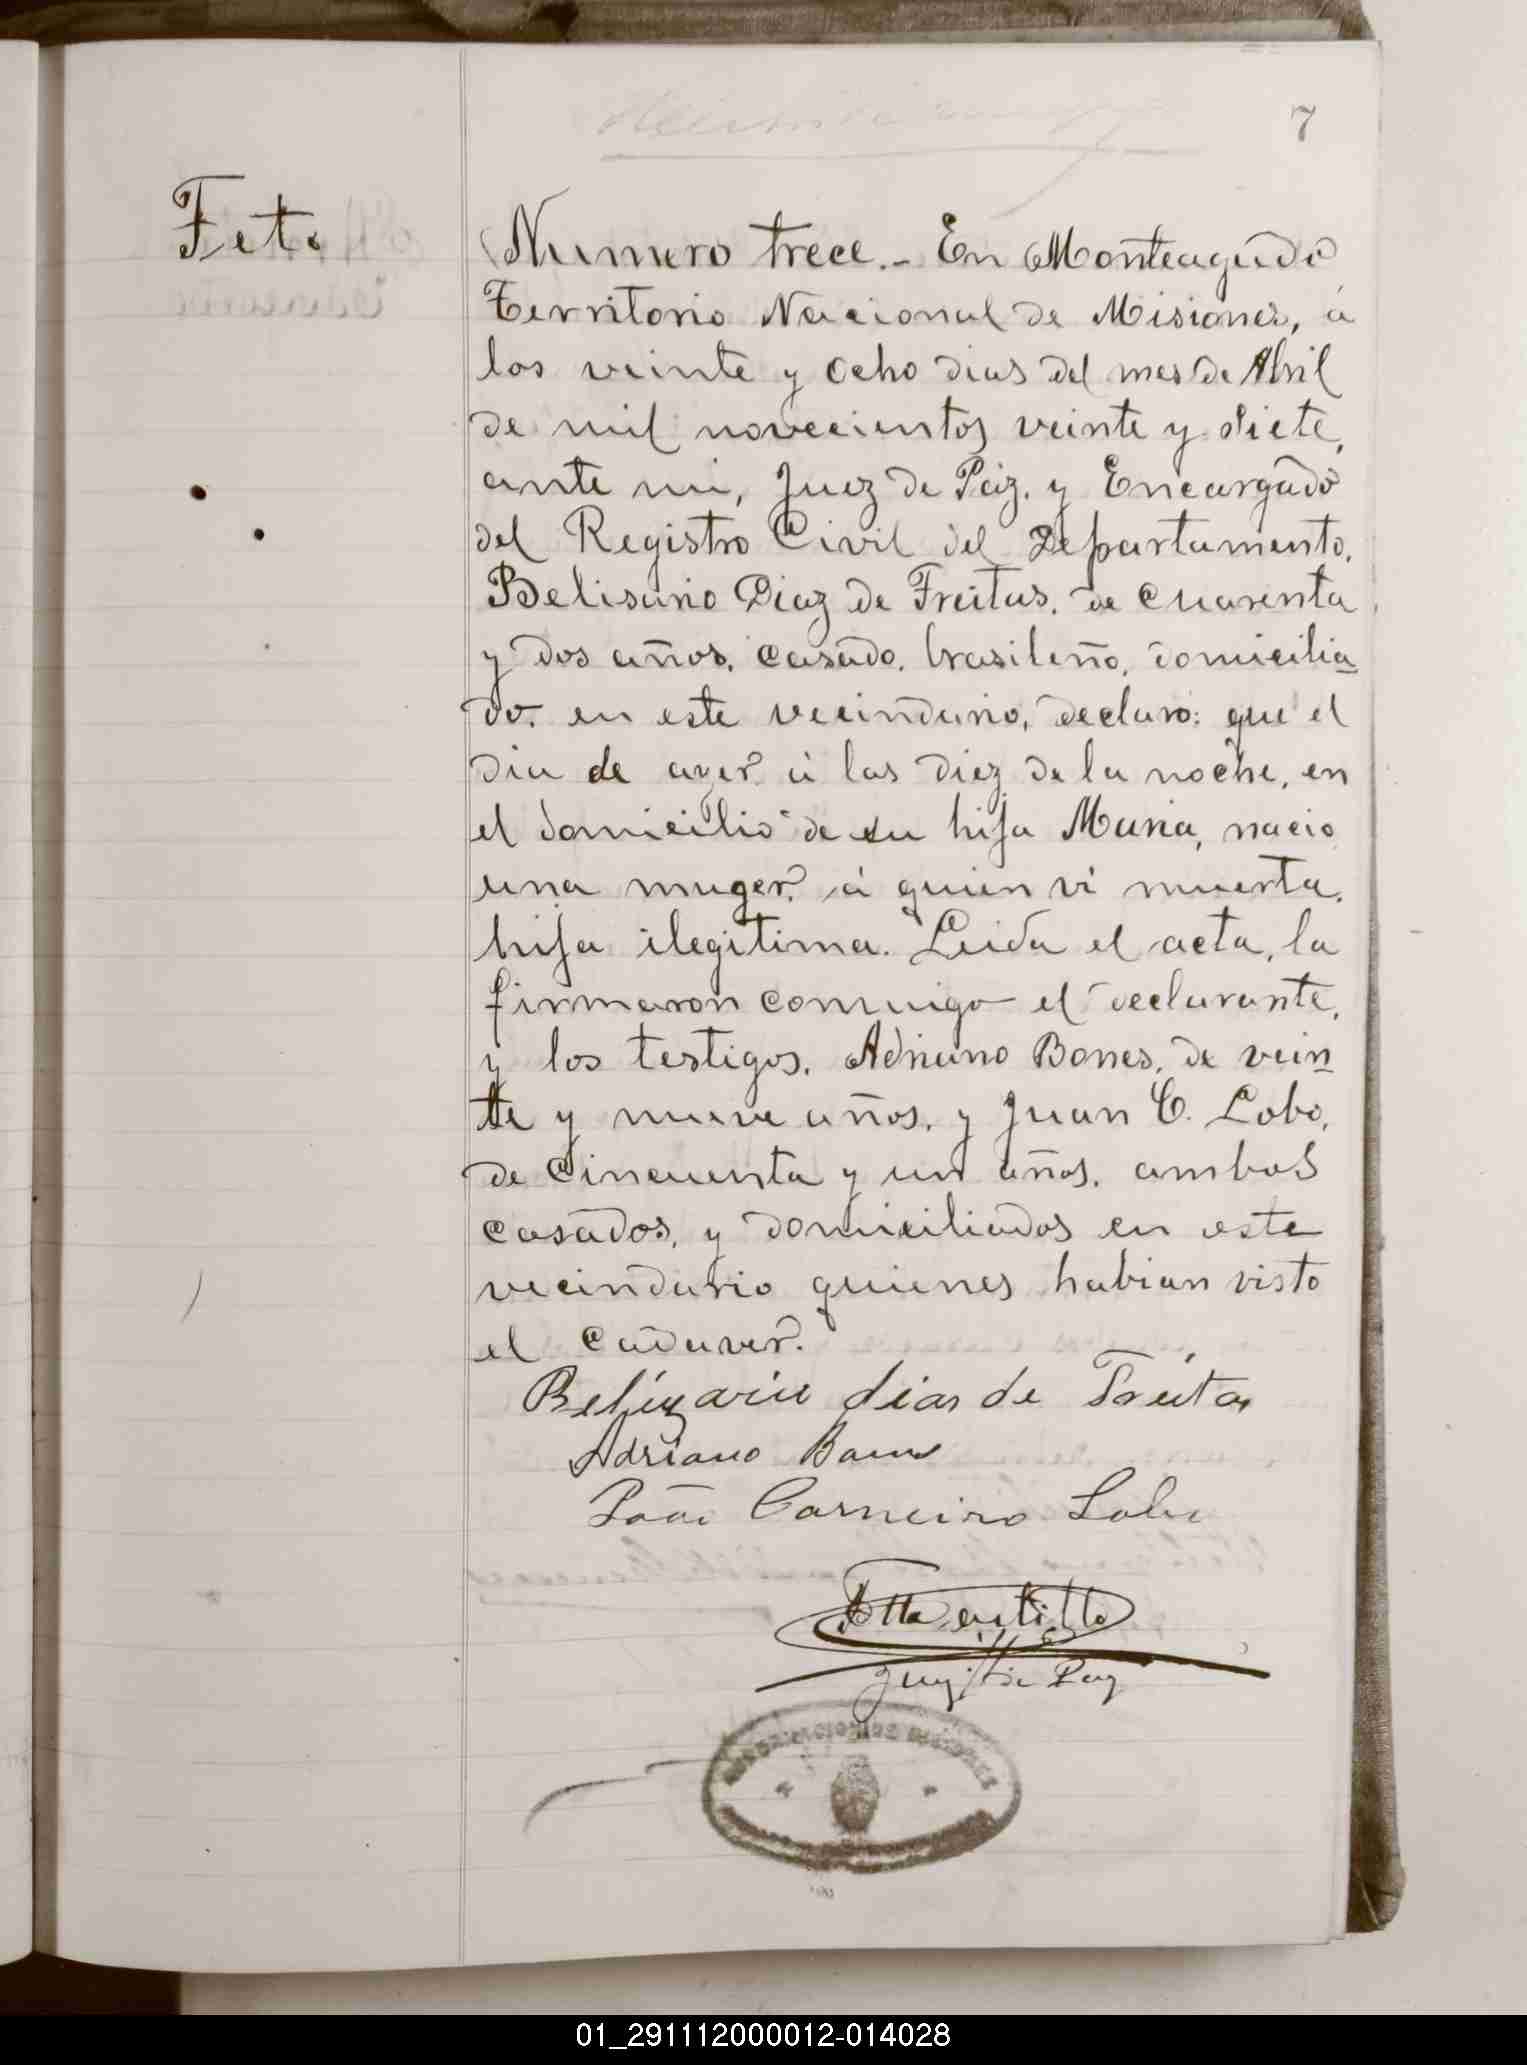 7
Feto
Numero trece.- En Monteagudo
Territorio Nacional de Misiones, á
los veinte y ocho dias del mes de Abril
de mil novecientos veinte y siete,
ante mi, Juez de Paz. y Encargado
del Registro Civil del Departamento.
Belisario Diaz de Freitas. de cuarenta
y dos años. casado. brasileño. domicilia-
do. en este vecindario, declaro: que el
dia de ayer á las diez de la noche, en
el domicilio de su hija Maria, nacio
una muger á quien vi muerta.
hija ilegitima. Leida el acta, la
firmaron conmigo el declarante,
y los testigos. Adriano Bones, de vein-
te y nueve años. y Juan C. Lobo,
de cincuenta y un años. ambos
casados, y domiciliados en este
vecindario quienes habian visto
el cadaver.
Belizario dias de Freitas
Adriano Bones
João Carneiro Lobo
Juez de Paz
01_291112000012-014028